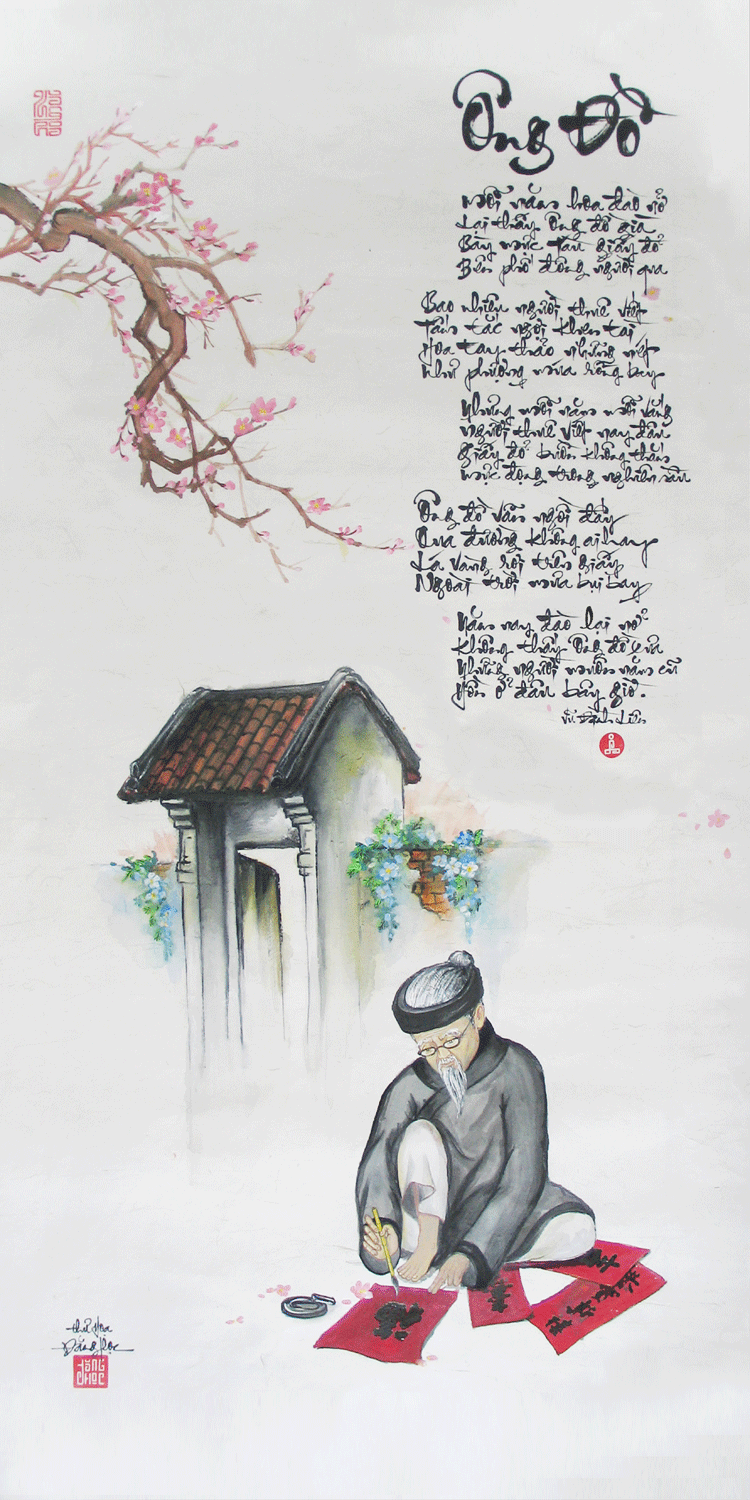 Ông Đồ
Mỗi năm hoa đào nở
Lại thấy Ông đồ già
Bày mực Tàu giấy đỏ
Bên phố đông người qua
Bao nhiêu người thuê viết
Tấm tắc ngợi khen tài
Hoa tay thảo những nét
Như phượng múa rồng bay
Nhưng mỗi năm mỗi vắng
Người thuê viết nay đâu
Giấy đỏ buồn không thắm
Mực đọng trong nghiên sầu
Ông đồ vẫn ngồi đấy
Qua đường không ai hay
Lá vàng rơi trên giấy
Ngoài trời mưa bụi bay
Năm nay đào lại nở
Không thấy Ông đồ xưa
Những người muôn năm cũ
Hồn ở đâu bây giờ
Vũ Đình Liên
Thư họa
Đăng Học
ĐĂNG
HỌC